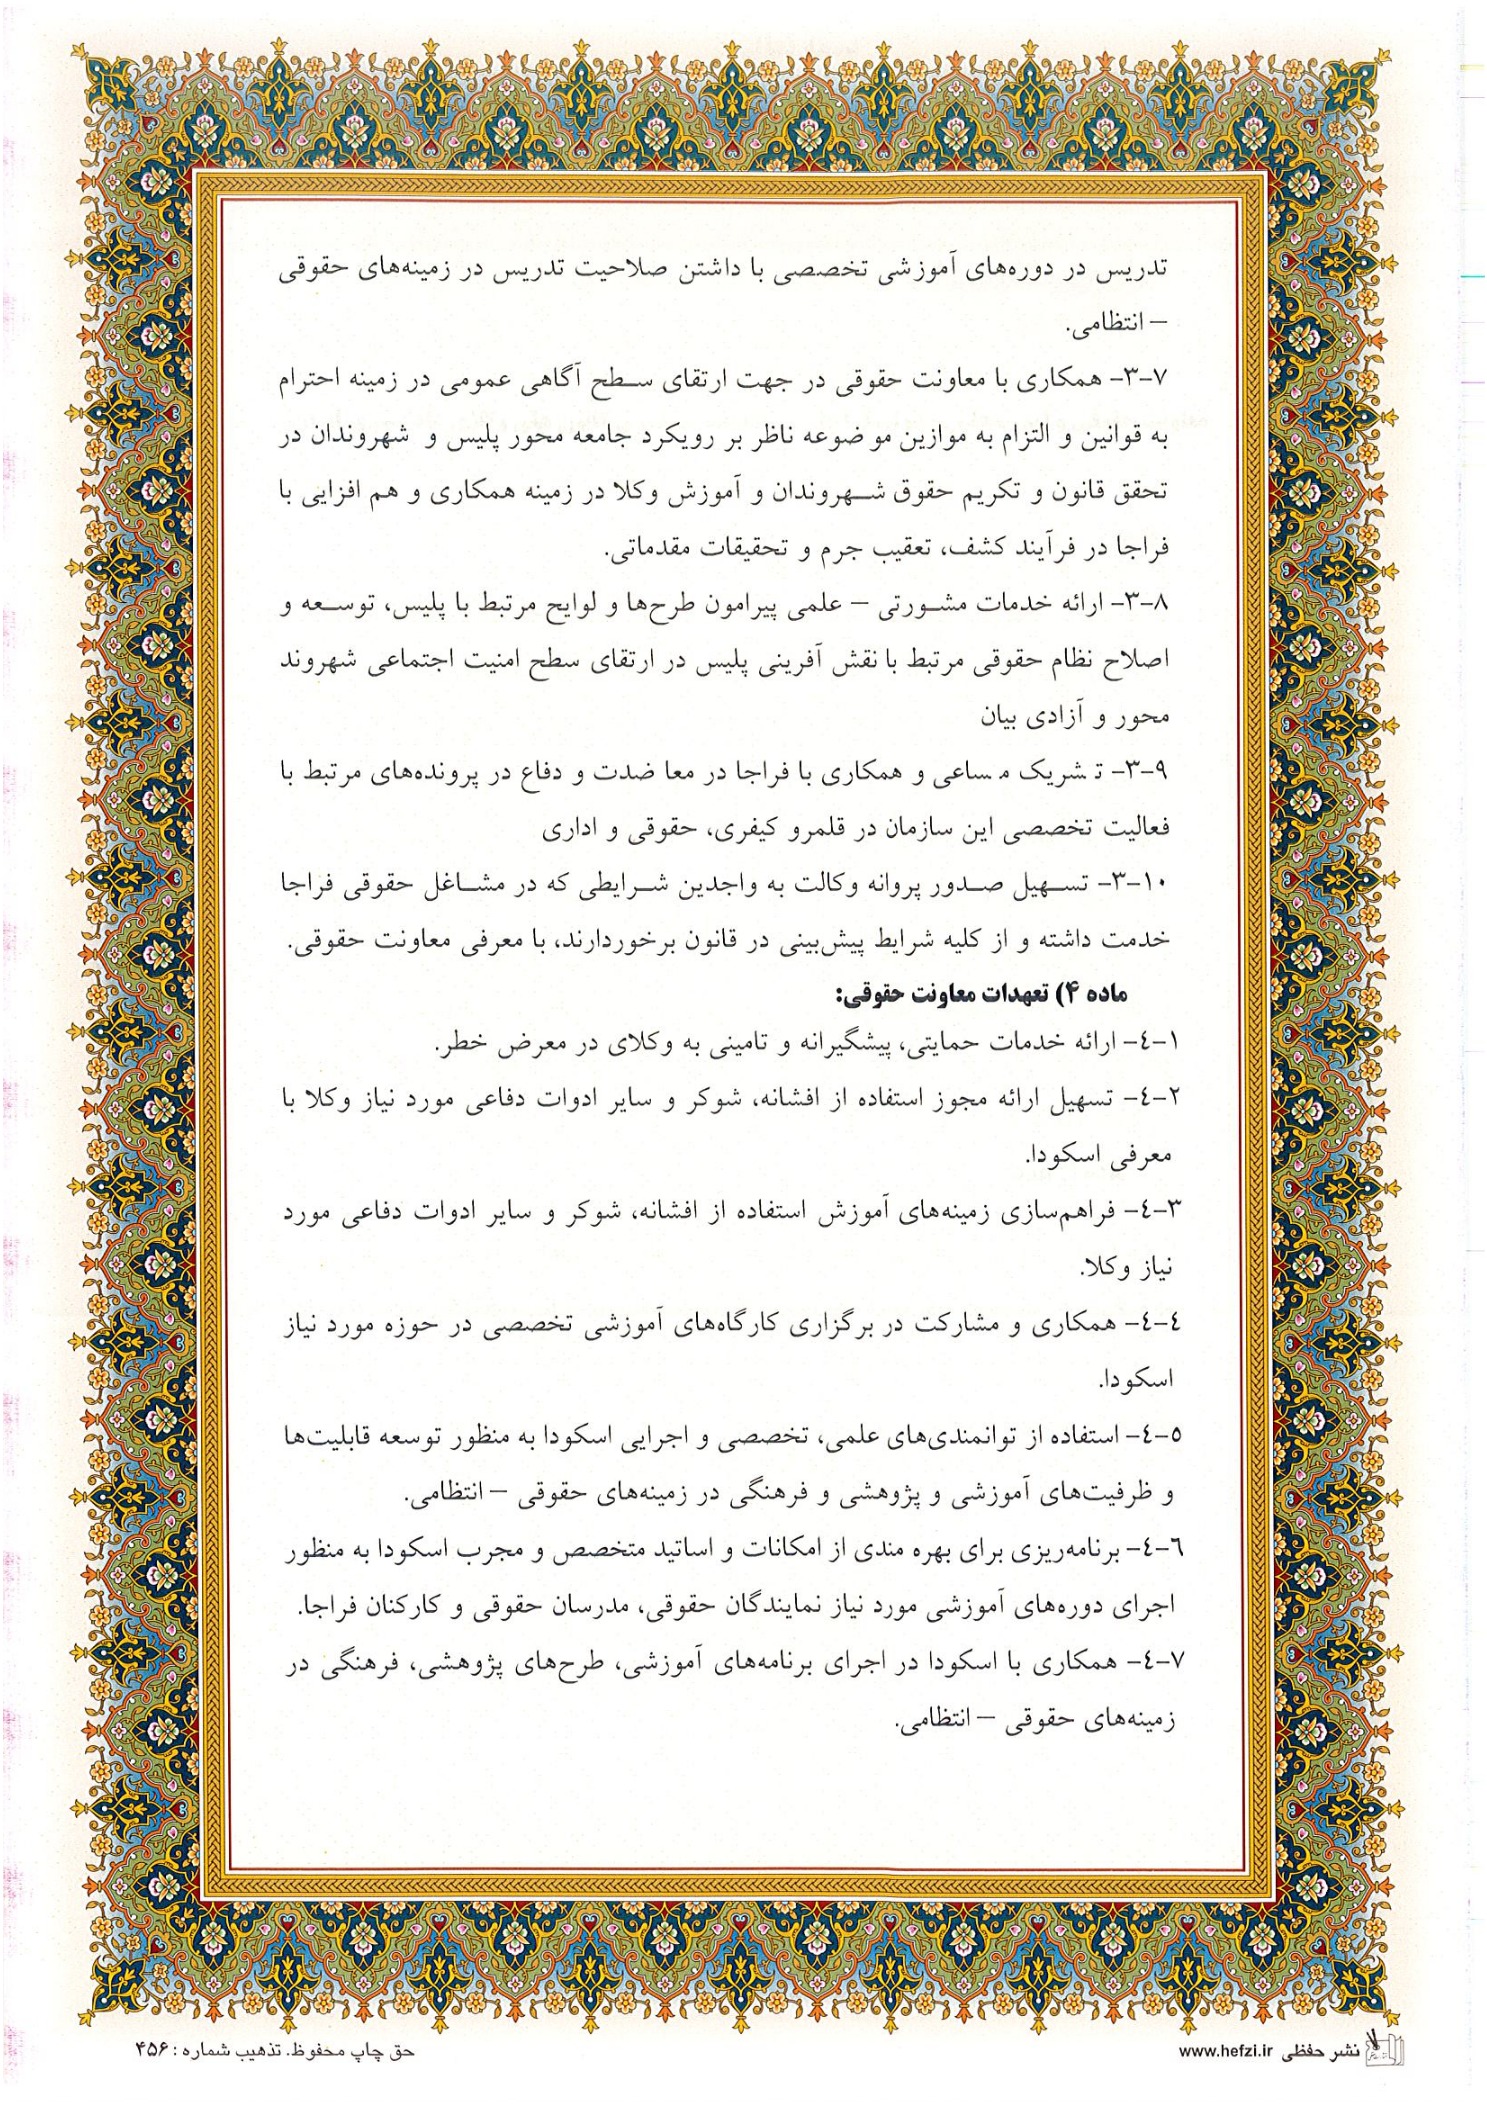 تدریس در دوره‌های آموزشی تخصصی با داشتن صلاحیت تدریس در زمینه‌های حقوقی
– انتظامی.
۳-۷- همکاری با معاونت حقوقی در جهت ارتقای سطح آگاهی عمومی در زمینه احترام
به قوانین و التزام به موازین موضوعه ناظر بر رویکرد جامعه محور پلیس و شهروندان در
تحقق قانون و تکریم حقوق شهروندان و آموزش وکلا در زمینه همکاری و هم افزایی با
فراجا در فرآیند کشف، تعقیب جرم و تحقیقات مقدماتی.
۳-۸- ارائه خدمات مشورتی – علمی پیرامون طرح‌ها و لوایح مرتبط با پلیس، توسعه و
اصلاح نظام حقوقی مرتبط با نقش آفرینی پلیس در ارتقای سطح امنیت اجتماعی شهروند
محور و آزادی بیان
۳-۹- تشریک مساعی و همکاری با فراجا در معاضدت و دفاع در پرونده‌های مرتبط با
فعالیت تخصصی این سازمان در قلمرو کیفری، حقوقی و اداری
۳-۱۰- تسهیل صدور پروانه وکالت به واجدین شرایطی که در مشاغل حقوقی فراجا
خدمت داشته و از کلیه شرایط پیش‌بینی در قانون برخوردارند، با معرفی معاونت حقوقی.
ماده ۴) تعهدات معاونت حقوقی:
٤-۱- ارائه خدمات حمایتی، پیشگیرانه و تامینی به وکلای در معرض خطر.
٤-۲- تسهیل ارائه مجوز استفاده از افشانه، شوکر و سایر ادوات دفاعی مورد نیاز وکلا با
معرفی اسکودا.
٤-۳- فراهم‌سازی زمینه‌های آموزش استفاده از افشانه، شوکر و سایر ادوات دفاعی مورد
نیاز وکلا.
٤-٤- همکاری و مشارکت در برگزاری کارگاه‌های آموزشی تخصصی در حوزه مورد نیاز
اسکودا.
٤-٥- استفاده از توانمندی‌های علمی، تخصصی و اجرایی اسکودا به منظور توسعه قابلیت‌ها
و ظرفیت‌های آموزشی و پژوهشی و فرهنگی در زمینه‌های حقوقی – انتظامی.
٤-٦- برنامه‌ریزی برای بهره مندی از امکانات و اساتید متخصص و مجرب اسکودا به منظور
اجرای دوره‌های آموزشی مورد نیاز نمایندگان حقوقی، مدرسان حقوقی و کارکنان فراجا.
٤-۷- همکاری با اسکودا در اجرای برنامه‌های آموزشی، طرح‌های پژوهشی، فرهنگی در
زمینه‌های حقوقی – انتظامی.
نشر حفظی www.hefzi.ir
حق چاپ محفوظ. تذهیب شماره : ۴۵۶